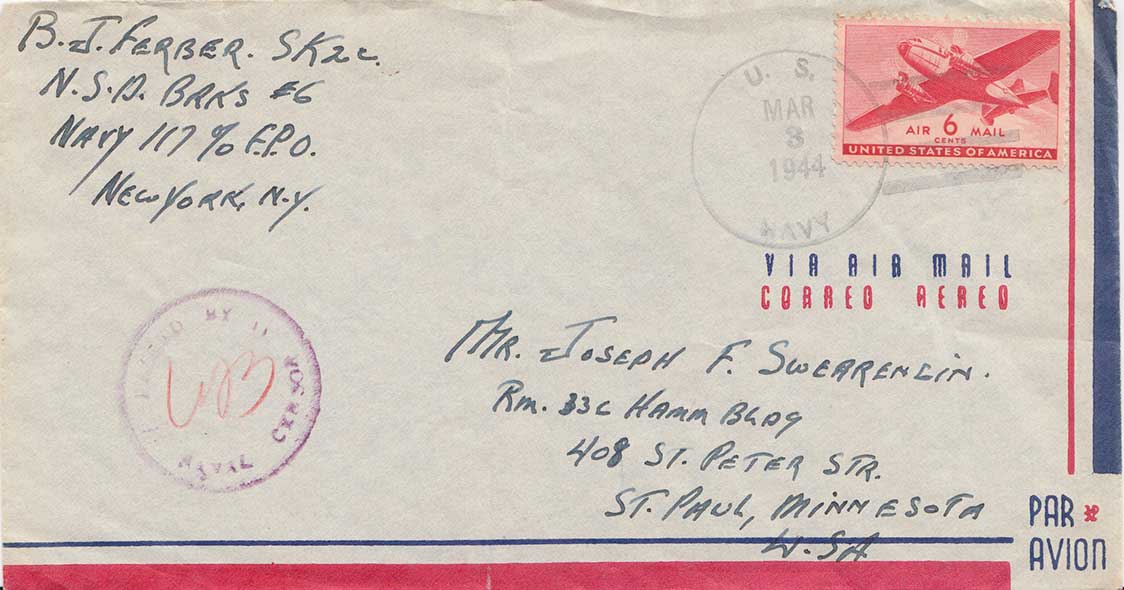 B. J. FERBER. SK2C.
N.S.D. BRKS #6
NAVY 117 % F.P.O.
NEW YORK, N.Y.
U. S.
MAR
3
1944
NAVY
AIR 6 MAIL
CENTS
UNITED STATES OF AMERICA
VIA AIR MAIL
CORREO AEREO
BY U
NAVAL CENSOR
MR. JOSEPH F. SWEARENGIN.
RM. 336 HAMM BLDG
408 ST. PETER STR.
ST. PAUL, MINNESOTA
U.SA
PAR
AVION